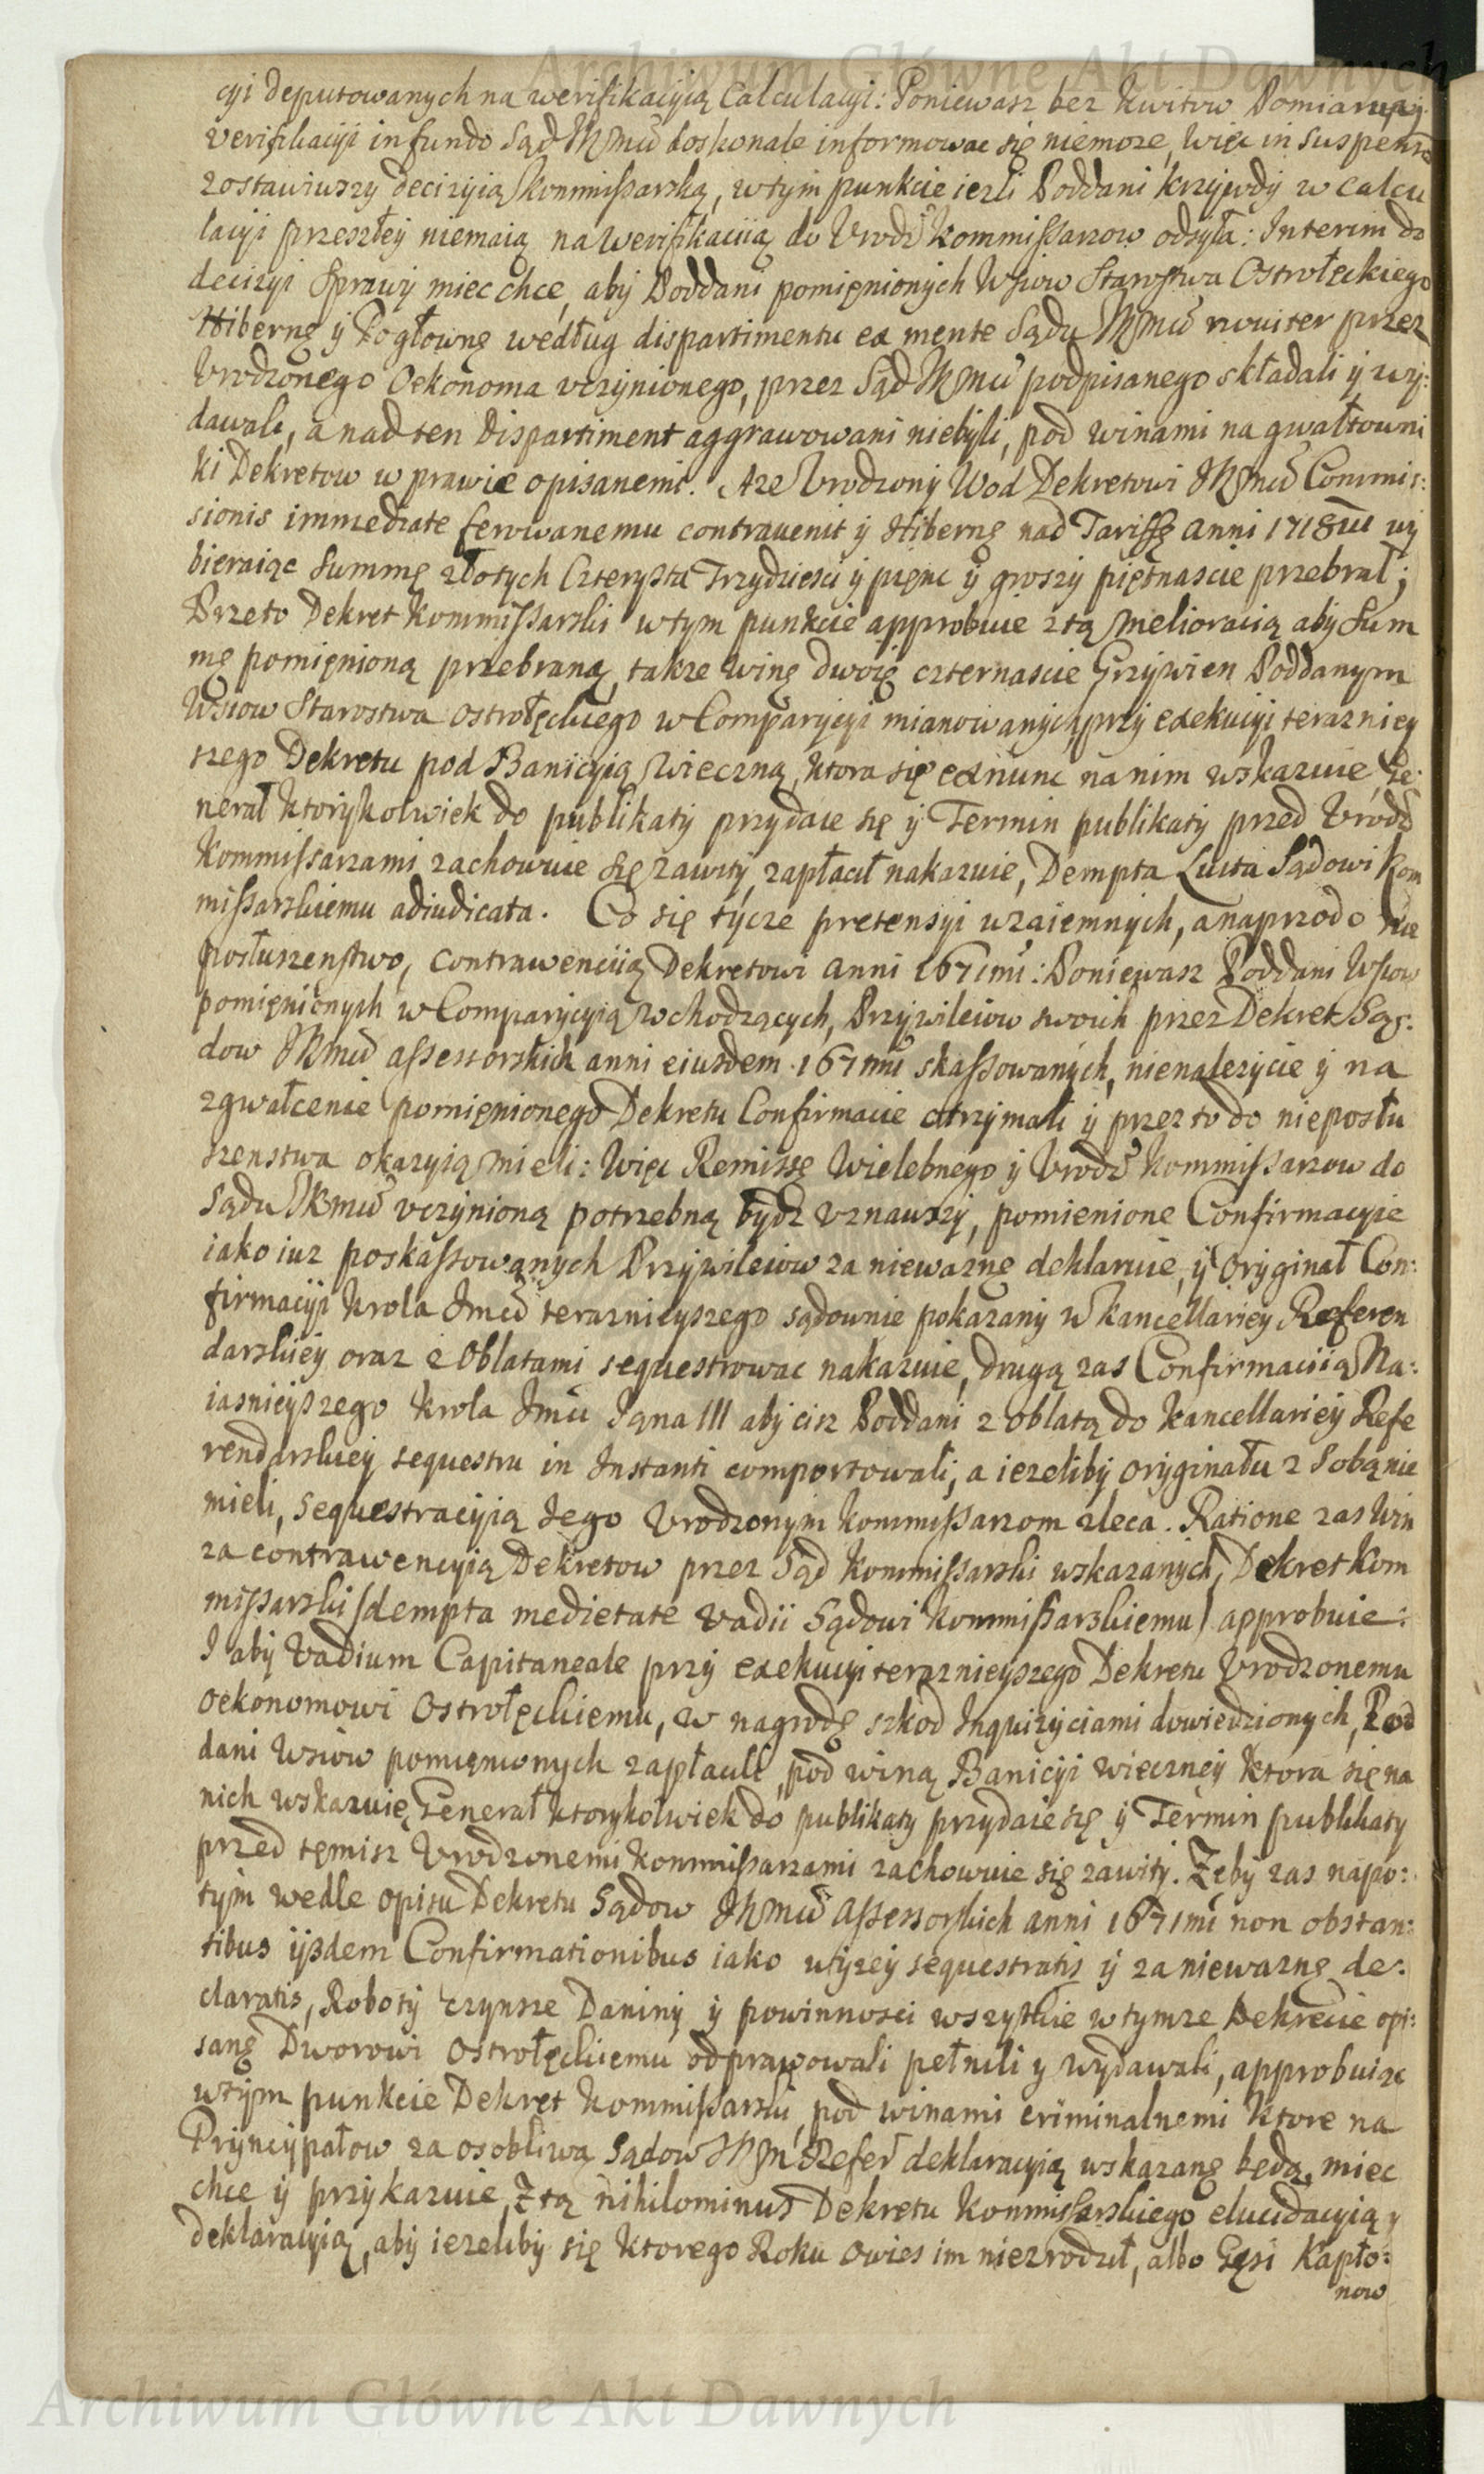 Archiwum Główne Akt Dawnych
cyi deputowanych na werifikacyią Calculacyi: Poniewasz bez kwitow Pomiarney
verifikacyi in fundo Sąd JKMci doskonale informowac się niemoze, więc in suspenso
zostawiwszy decizyią Kommissarską, w tym punkcie iezli Poddani krzywdy w calcu
lacyi przeszłey niemaią na werifikaciią do Vrodz Kommissarzow odsyła: Interim do
decizyi Sprawy miec chce, aby Poddani pomięnionych Wsiow Starostwa Ostrołęckiego
Hibernę y Pogłownę według dispartimentu ex mente Sądu JKMci noviter przez
Vrodzonego Oekonoma vczynionego, przez Sąd JKMci podpisanego składali y wy:
dawali, a nad ten dispartiment aggrawowani niebyli, pod winami na gwałtowni
ki Dekretow w prawie opisanemi. Aze Vrodzony Wod Dekretowi JKMci Commis:
sionis immediate ferowanemu contravenit y Hibernę nad Tariffę anni 1718vi wy
bieraiąc Summę złotych Czterysta Trzydziesci y pięnc y groszy piętnascie przebrał;
Przeto Dekret Kommissarski w tym punkcie approbuie z tą melioracią aby Sum
mę pomięnioną przebraną, takze winę dwoię czternascie Grzywien Poddanym
Wsiow Starostwa Ostrołęckiego w Comparycyi mianowanych przy exekucyi terazniey
szego Dekretu pod Banicyią wieczną, ktora się ex nunc na nim wskazuie, Ge:
nerał ktorykolwiek do publikaty przydaie się y Termin publikaty przed Vrodz
Kommissarzami zachowuie się zawity, zapłacił nakazuie, Dempta Luita Sądowi Kom
missarskiemu adiudicata. Co się tycze pretensyi wzaiemnych, a naprzod o nie
posłuszenstwo, contrawenciią Dekretowi anni 1671mi: Poniewasz Poddani Wsiow
pomięnionych w Comparycyią wchodzących, Przywileiow swoich przez Dekret Są:
dow JKMci assessorskich anni eiusdem 1671mi skassowanych, nienalezycie y na
zgwałcenie pomięnionego Dekretu Confirmacie otrzymali y przez to do nieposłu
szenstwa okazyią mieli: Więc Remissę Wielebnego y Vrodz Kommissarzow do
Sądu JKMci vczynioną potrzebną bydz vznawszy, pomienione Confirmacyie
iako iuz poskassowanych Przywileiow za niewaznę deklaruie, y Oryginał Con:
firmacyi Krola Jmci teraznieyszego sądownie pokazany w Kancellariey Referen
darskiey oraz z Oblatami sequestrowac nakazuie, drugą zas Confirmaciią Na:
iasnieyszego Krola Jmci Jana III aby cisz Poddani z oblatą do Kancellariey Refe
rendarskiey sequestru in Instanti comportowali, a iezeliby oryginału z Sobą nie
mieli, sequestracyią Jego Vrodzonym Kommissarzom zleca. Ratione zas Win
za contrawencyią Dekretow przez Sąd Kommissarski wskazanych, Dekret Kom
missarski (dempta medietate vadii Sądowi Kommissarskiemu) approbuie:
I aby Vadium Capitaneale przy exekucyi teraznieyszego Dekretu Vrodzonemu
Oekonomowi Ostrołęckiemu, w nagrodę szkod Inquizyciami dowiedzionych, Pod
dani Wsiow pomięnionych zapłacili, pod winą Banicyi wieczney ktora się na
nich wskazuię, Generał ktorykolwiek do publikaty przydaie się y Termin publikaty
przed tęmisz Vrodzonemi Kommissarzami zachowuie się zawity. Zęby zas napo:
tym wedle opisu Dekretu Sądow JKMci Assessorskich anni 1671mi non obstan:
tibus ijsdem Confirmationibus iako wyzey sequestratis y za niewaznę de:
claratis, Roboty czynsze Daniny y powinnosci wszytkie w tymze Dekrecie opi:
sanę Dworowi Ostrołęckiemu odprawowali pełnili y wydawali, approbuiąc
w tym punkcie Dekret Kommissarski, pod winami criminalnemi ktore na
Pryncypałow za osobliwą Sądow JKM Refer deklaracyią wskazanę będą, miec
chce y przykazuie, Z tą nihilominus Dekretu Kommissarskiego elucidacyią y
deklaracyią, aby iezeliby się ktorego Roku owies im niezrodził, albo Gęsi Kapło:
now
Archiwum Główne Akt Dawnych